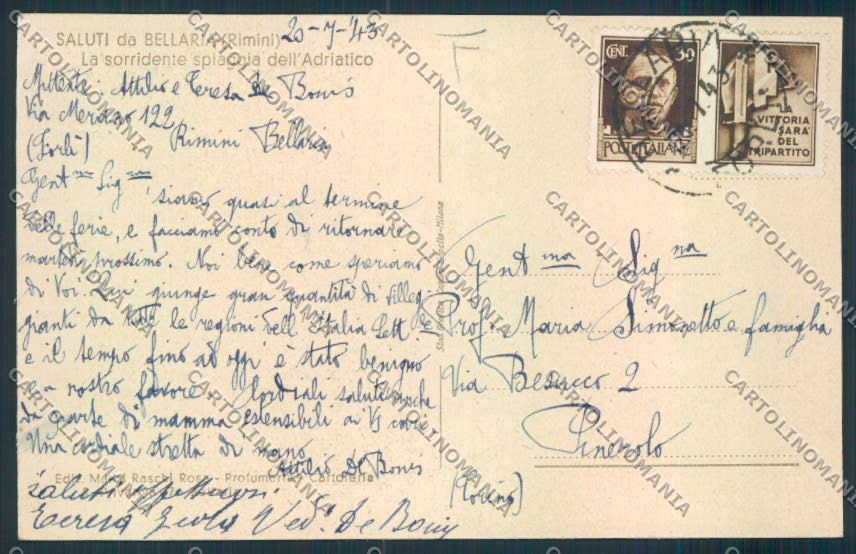 20-7-43
SALUTI da BELLARIA (Rimini)
La sorridente spiaggia dell'Adriatico
Mittenti: Attilio e Teresa De Bonis
Via Merano 122
(Forlì) Rimini Bellaria
Gent me Sig ne,
siamo quasi al termine
delle ferie, e facciamo conto di ritornare
martedì prossimo. Noi bene come speriamo
di Voi. Qui giunge gran quantità di villeg
gianti da tutte le regioni dell'Italia Sett. le
e il tempo fino ad oggi è stato benigno
e a nostro favore. Cordiali saluti anche
da parte di mamma estensibili ai Vs cari.
Una cordiale stretta di mano
Attilio De Bonis
Saluti affettuosi
Teresa Ved. De Bonis
Profumeria Cartoleria
CENT. 30
POSTE ITALIANE
LA
VITTORIA
SARÀ
DEL
TRIPARTITO
BELLARIA
Gent ma Sig na
Prof. Maria Simonetto e famiglia
Via 2
Pinerolo
(Torino)
CARTOLINOMANIA